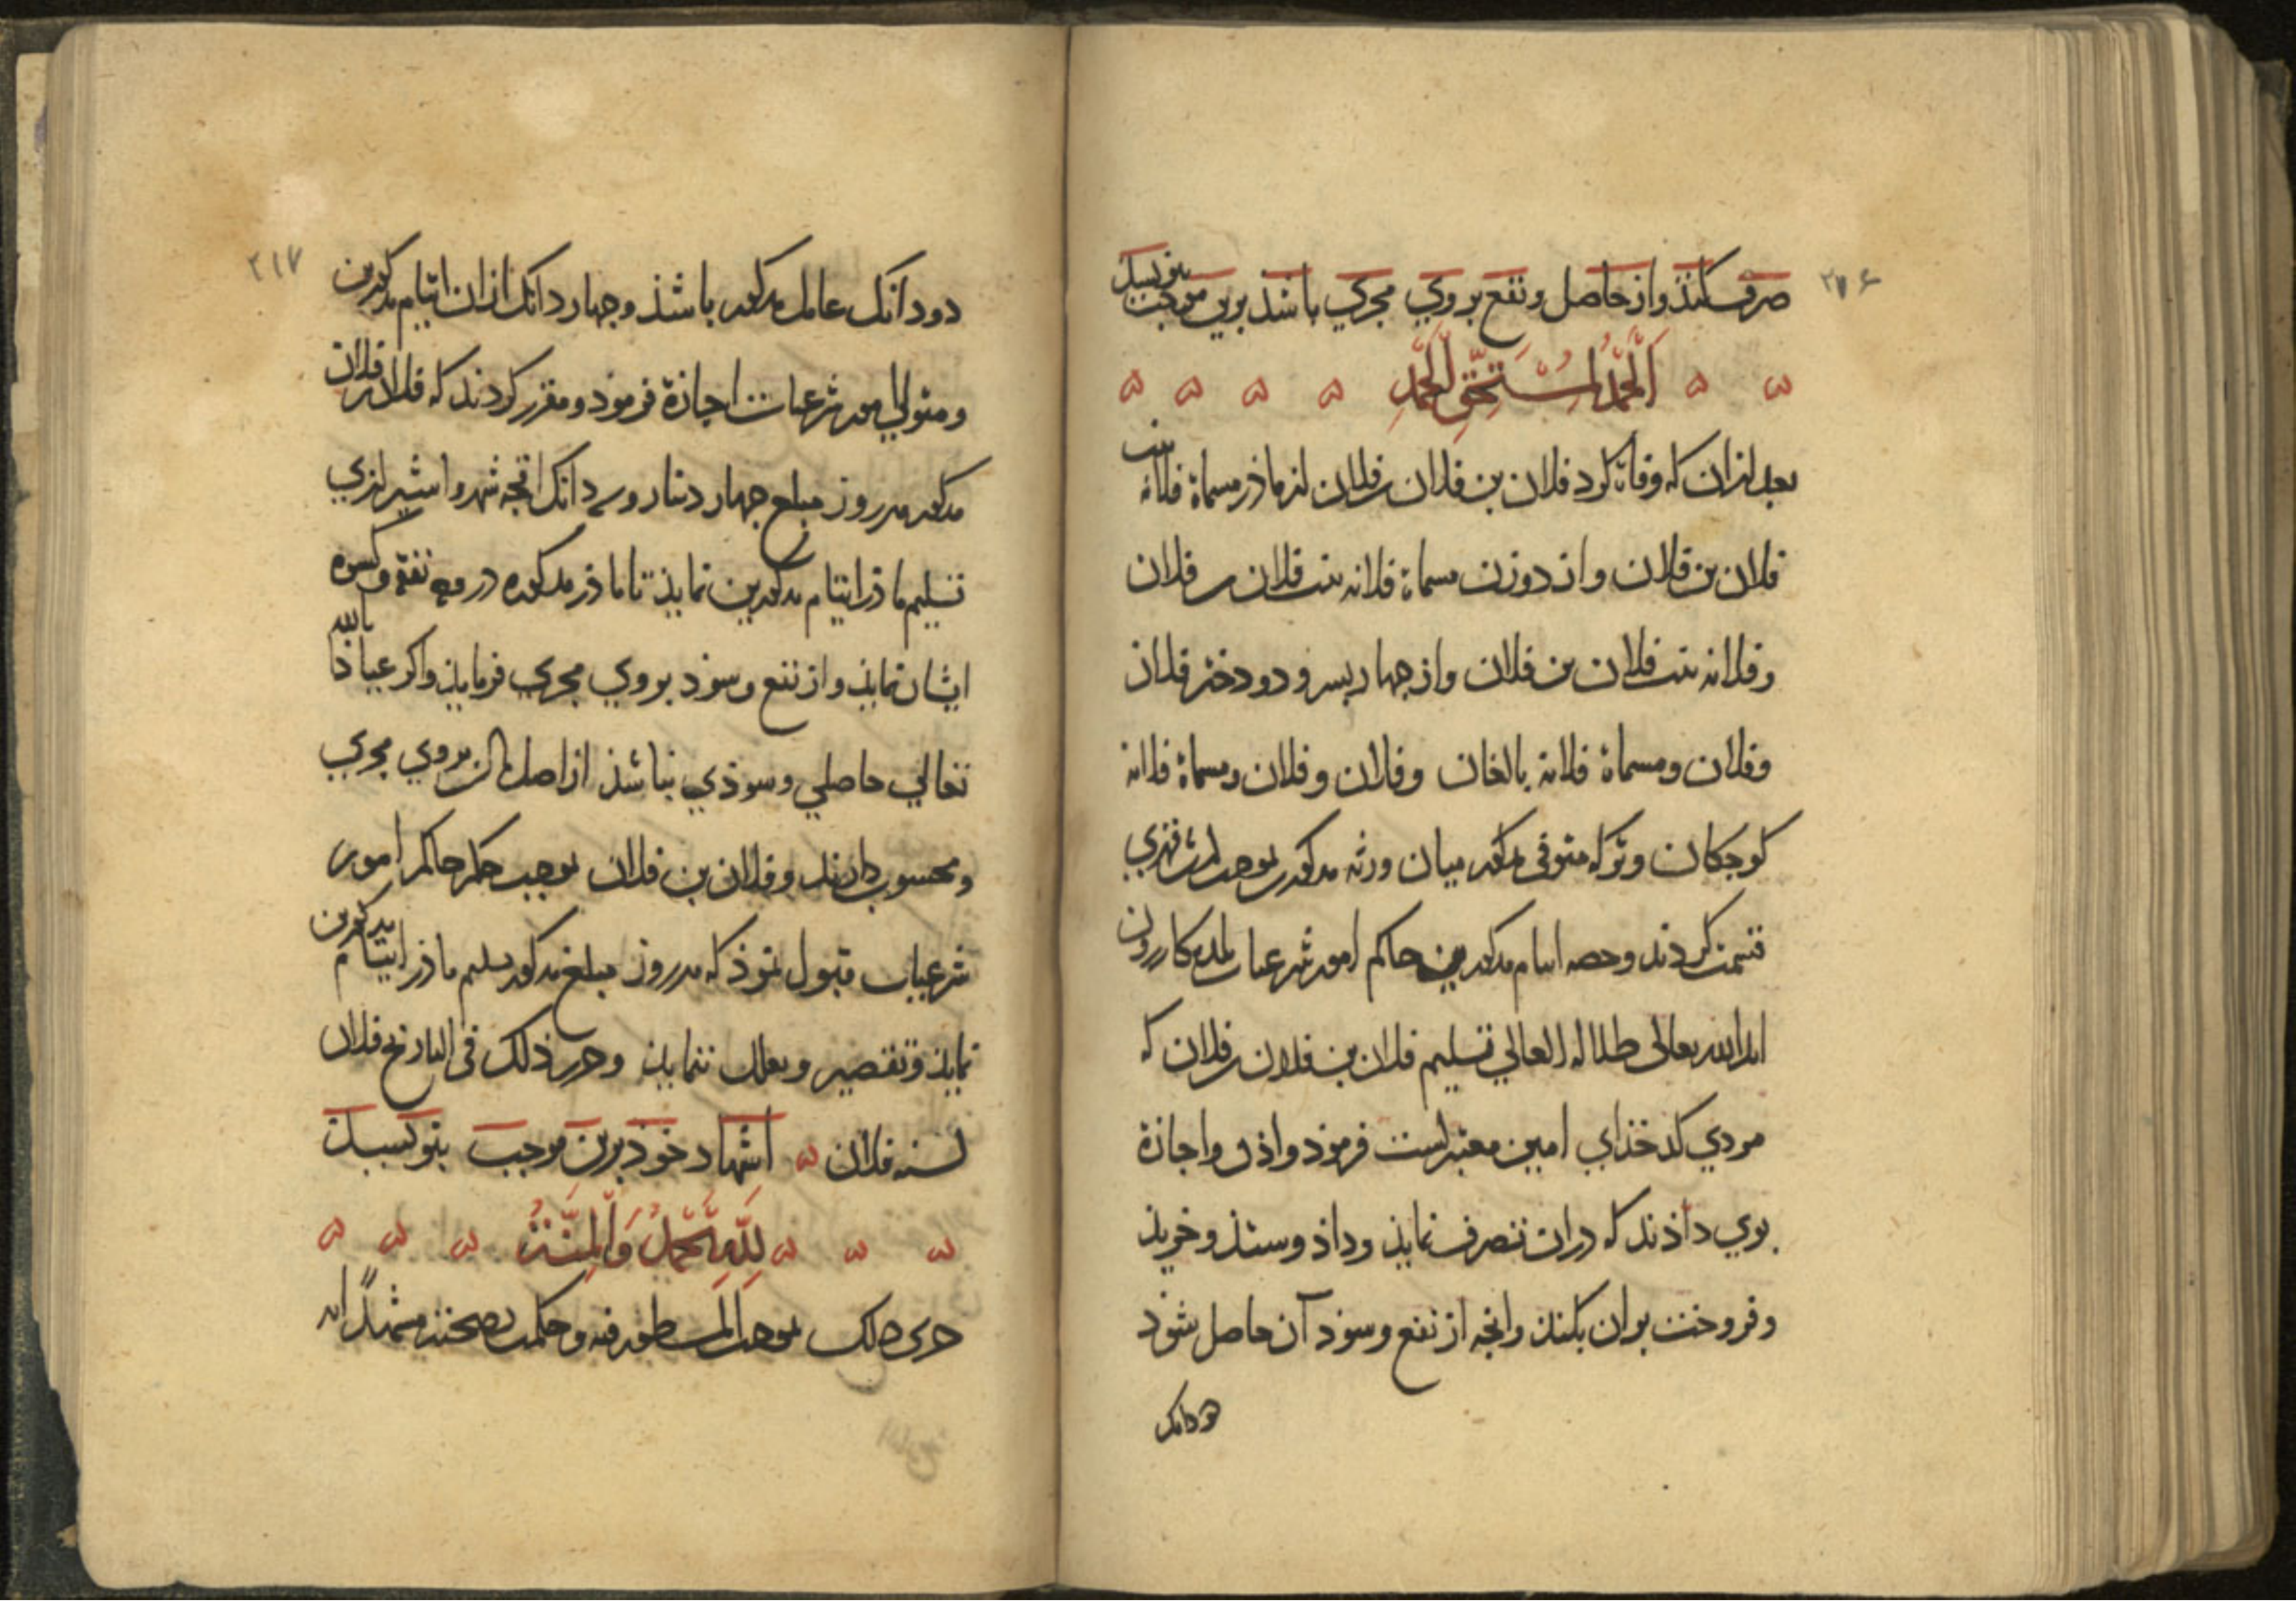 صرف کنند واز حاصل ونفع بروي مجري باشد برین موجب بنویسد
اَلْحَمْدُ لِمُسْتَحِقِّ الْحَمْدِ
بعد ازان که وفاة کرد فلان بن فلان بن فلان از ماذر مسماة فلانه بنت
فلان بن فلان واز دوزن مسماة فلانه بنت فلان بن فلان
وفلانه بنت فلان بن فلان واز جهار پسر و دو دختر فلان
وفلان ومسماة فلانه بالغان وفلان وفلان ومسماة فلانه
کوجکان وترکه متوفی مذکور میان ورثه مذکور بموجب
قسمت کردند وحصه ایتام مذکورین حاکم امور شرعیات
الله تعالی ظلاله العالي تسلیم فلان بن فلان بن فلان که
مردي کدخذاي امین معتبرست فرموذ واذن واجازة
بوي داذند که دران تصرف نمایذ وداذ وستذ وخریذ
وفروخت بران بکند وانجه از نفع وسوذ آن حاصل شوذ
٢١٧
دو دانک عامل مذکور باشذ وجهار دانک ازان ایتام مذکورین
ومتولي امور شرعیات اجازة فرموذ ومقرر کردند که فلان بن فلان
مذکور هر روز مبلغ جهار دینار و دانک اقجه شهروا شیرازي
تسلیم ماذر ایتام مذکورین نمایذ تا ماذر مذکوره در وجه نفقه وکسوه
ایشان نمایذ واز نفع وسوذ بروي مجري فرمایذ واکر عیاذا بالله
تعالي حاصلي وسوذي نباشذ از اصل مال بروي مجري
ومحسوب دارند وفلان بن فلان بموجب حکم حاکم امور
شرعیات قبول نموذ که هر روز مبلغ مذکور تسلیم ماذر ایتام مذکورین
نمایذ وتقصیر وتعلل ننمایذ وحرر ذلک فی التاریخ فلان
لسنه فلان اشهاد خوذ برین موجب بنویسد
لِلّٰهِ الْحَمْدُ وَالْمِنَّةُ
جری ذلک بموجب المسطور فیه وحکمت بصحته